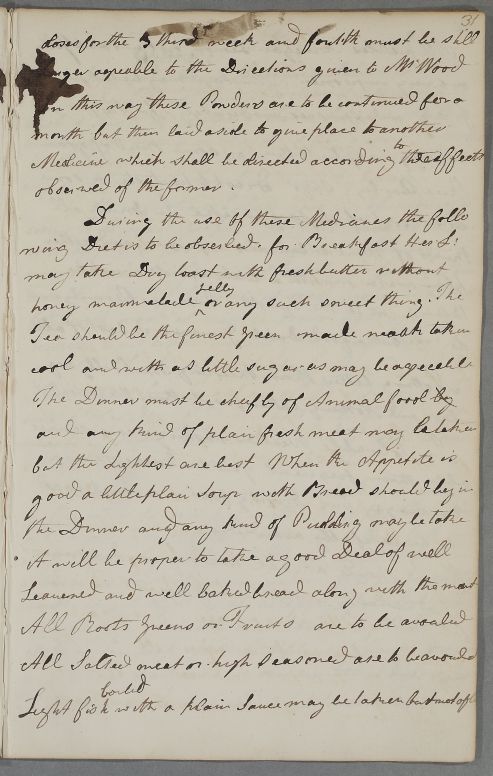 31
doses for the 3 third week and fourth must be still
larger agreable to the Directions given to Mr Wood
In this way these Powders are to be continued for a
month but then laid aside to give place to another
Medicine which shall be directed according to the effects
observed of the former.
During the use of these Medicines the follo
wing Diet is to be observed. for Breakfast Her L:
may take Dry toast with fresh butter without
honey marmelade Jelly or any such sweet thing. The
Tea should be the finest green made weak taken
cool and with as little sugar as may be agreeable
The Dinner must be cheifly of Animal food
and any kind of plain fresh meat may be taken
but the Lightest are best When the Appetite is
good a little plain Soup with Bread should begin
the Dinner and any kind of Pudding may be take
it will be proper to take a good Deal of well
Leavened and well baked bread along with the meat
All Roots greens or Fruits are to be avoided
All Salted meat or high Seasoned are to be avoided
Light boiled fish with a plain Sauce may be taken but not oft